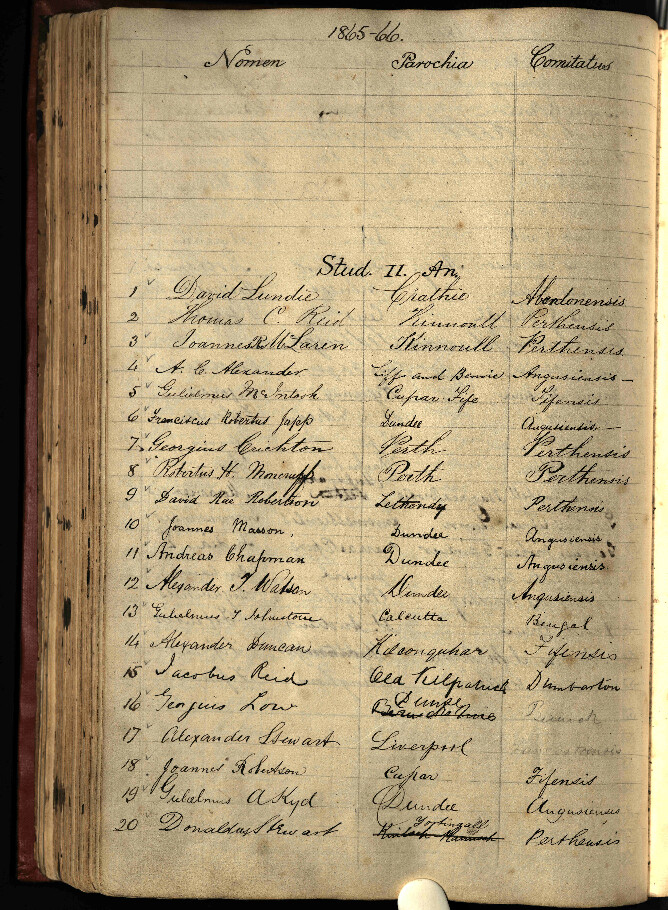 1865-66.
Nomen Parochia Comitatus
Stud. II. An.
1 David Lundie Crathie Aberdonensis
2 Thomas C. Reid Kinnoull Perthensis
3 Joannes R. McLaren Kinnoull Perthensis
4 A. C. Alexander Liff and Benvie Angusiensis —
5 Gulielmus McIntosh Cupar-Fife Fifensis
6 Franciscus Robertus Japp Dundee Angusiensis —
7 Georgius Crichton Perth Perthensis
8 Robertus H. Moncrieff Perth Perthensis
9 David Rae Robertson Lethendy Perthensis
10 Joannes Masson. Dundee Angusiensis
11 Andreas Chapman Dundee Angusiensis
12 Alexander T. Watson Dundee Angusiensis
13 Gulielmus T Johnstone Calcutta Bengal
14 Alexander Duncan Kilconquhar Fifensis
15 Jacobus Reid Old Kilpatrick Dumbarton
16 Georgius Low Dunse
17 Alexander Stewart Liverpool
18 Joannes Robertson Cupar Fifensis
19 Gulielmus A Kyd Dundee Angusiensis
20 Donaldus Stewart Fortingall Perthensis